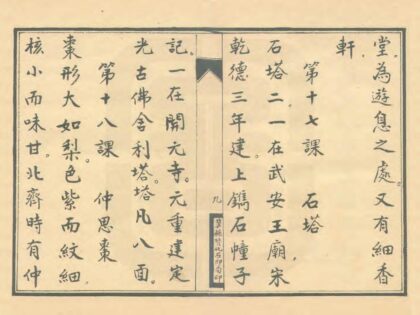 堂。為遊息之處。又有細香
軒。
第十七課　石塔
石塔二。一在武安王廟。宋
乾德三年建。上鐫石幢子
九
記。一在開元寺。元重建定
光古佛舍利塔。塔凡八面。
第十八課　仲思棗
棗形大如梨。色紫而紋細。
核小而味甘。北齊時有仲